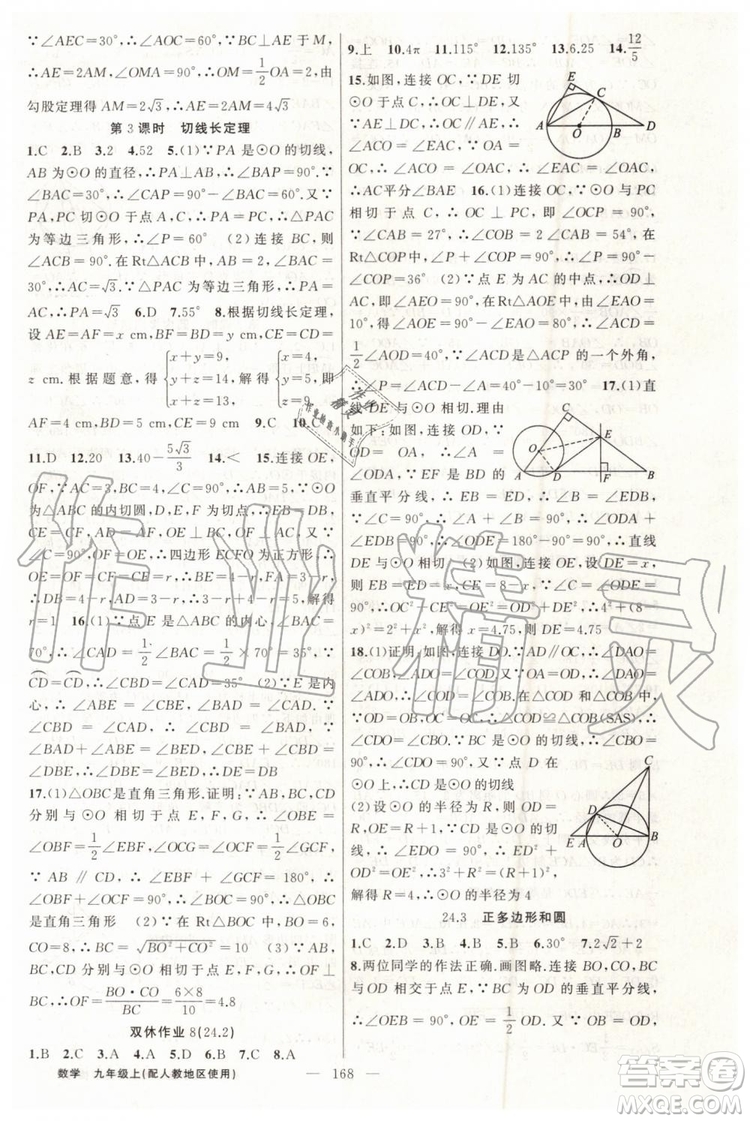 ∵∠AEC=30°,∴∠AOC=60°,∵BC⊥AE于M,∴
AE=2AM,∠OMA=90°,∴OM=1/2OA=2,∴由
勾股定理得AM=2√3,∴AE=2AM=4√3
第3课时 切线长定理
1.C 2.B 3.2 4.52 5.(1)∵PA是⊙O的切线,
AB为⊙O的直径,∴PA⊥AB,∴∠BAP=90°.∵
∠BAC=30°,∴∠CAP=90°-∠BAC=60°.又∵
PA,PC切⊙O于点A,C,∴PA=PC,∴△PAC
为等边三角形,∴∠P=60° (2)连接BC,则
∠ACB=90°.在Rt△ACB中,AB=2,∠BAC=
30°,∴AC=√3.∵△PAC为等边三角形,∴PA=
AC,∴PA=√3 6.D 7.55° 8.根据切线长定理,
设AE=AF=x cm,BF=BD=y cm,CE=CD=
z cm.根据题意,得{x+y=9,y+z=14,x+z=13,解得{x=4,y=5,z=9,即
AF=4 cm,BD=5 cm,CE=9 cm 9.C 10.C
11.D 12.20 13.40-5√3/3 14.< 15.连接OE,
OF,∵AC=4,BC=3,∠C=90°,∴AB=5.∵⊙O
为△ABC的内切圆,D,E,F为切点,∴EB=DB,
CE=CF,AD=AF,OE⊥BC,OF⊥AC.又∵
∠C=90°,OF=OE,∴四边形ECFO为正方形,∴
CE=CF=OF=OE=r,∴BE=3-r,AF=4-r,
∴BD=3-r,AD=4-r,∴3-r+4-r=5,解得
r=1 16.(1)∵点E是△ABC的内心,∠BAC=
70°,∴∠CAD=1/2∠BAC=1/2×70°=35°.∵
CD=CD,∴∠CBD=∠CAD=35° (2)∵E是内
心,∴∠ABE=∠CBE,∠BAD=∠CAD.∵
∠CBD=∠CAD,∴∠CBD=∠BAD.∵
∠BAD+∠ABE=∠BED,∠CBE+∠CBD=
∠DBE,∴∠DBE=∠BED,∴DE=DB
17.(1)△OBC是直角三角形.证明:∵AB,BC,CD
分别与⊙O相切于点E,F,G,∴∠OBE=
∠OBF=1/2∠EBF,∠OCG=∠OCF=1/2∠GCF,
∵AB∥CD,∴∠EBF+∠GCF=180°,∴
∠OBF+∠OCF=90°,∴∠BOC=90°,∴△OBC
是直角三角形 (2)∵在Rt△BOC中,BO=6,
CO=8,∴BC=√(BO²+CO²)=10 (3)∵AB,BC,
CD分别与⊙O相切于点E,F,G,∴OF⊥BC,
∴OF=BO·CO/BC=6×8/10=4.8
双休作业8(24.2)
1.B 2.C 3.A 4.B 5.B 6.D 7.C 8.A
9.上 10.4π 11.115° 12.135° 13.6.25 14.12/5
15.如图,连接OC,∵DE切
⊙O于点C,∴OC⊥DE.又
∵AE⊥DC,∴OC∥AE,
∴∠CAE=∠ACO.∵
OA=OC,∴∠ACO=
∠OAC,∴∠CAE=∠OAC,
∴AC平分∠BAE 16.(1)连接OC,∵⊙O与PC
相切于点C,∴OC⊥PC,即∠OCP=90°.∵
∠CAB=27°,∴∠COB=2∠CAB=54°.在Rt△
COP中,∠P+∠COP=90°,∴∠P=90°-
∠COP=36° (2)∵E为AC的中点,∴OD⊥
AC,即∠AEO=90°.在Rt△AOE中,由∠EAO=
10°,得∠AOE=90°-∠EAO=80°,∴∠ACD=
1/2∠AOD=40°.∵∠ACD是△ACP的一个外角,
∴∠P=∠ACD-∠A=40°-10°=30° 17.(1)直
线DE与⊙O相切.理由
如下:如图,连接OD,∵
OD=OA,∴∠A=
∠ODA.∵EF是BD的
垂直平分线,∴EB=ED,∴∠B=∠EDB.∵
∠C=90°,∴∠A+∠B=90°,∴∠ODA+
∠EDB=90°,∴∠ODE=180°-90°=90°,∴直线
DE与⊙O相切 (2)如图,连接OE,设DE=x,
则EB=ED=x,CE=8-x.∵∠C=∠ODE=
90°,∴OC²+CE²=OE²=OD²+DE²,∴4²+(8-
x)²=2²+x²,解得x=4.75,即DE=4.75
18.(1)证明:如图,连接DO.∵AD∥OC,∴∠DAO=
∠COB,∠ADO=∠COD.又∵OA=OD,∴∠DAO=
∠ADO,∴∠COD=∠COB.
又∵CO=CO,OD=OB,∴△COD≌△COB(SAS),∴
∠CDO=∠CBO.∵BC是⊙O的切线,∴∠CBO=
90°,∴∠CDO=90°.又∵点D
在⊙O上,∴CD是⊙O的切线
(2)设⊙O的半径为R,则OD=
R,OE=R+1,∵CD是⊙O的
切线,∴∠EDO=90°,∴ED²+
OD²=OE²,∴3²+R²=(R+1)²,
解得R=4,∴⊙O的半径为4
24.3 正多边形和圆
1.C 2.D 3.B 4.B 5.B 6.30° 7.2√2+2
8.两位同学的作法正确.画图略.连接BO,CO,∵BC
与OD相交于点E,BC垂直平分OD,∴在
Rt△OEB中,OE=1/2OD=1/2OB,
∴∠OEB=90°,
数学 九年级上(配人教地区使用)
— 168 —
作业精灵
答案圈
MXQE.COM